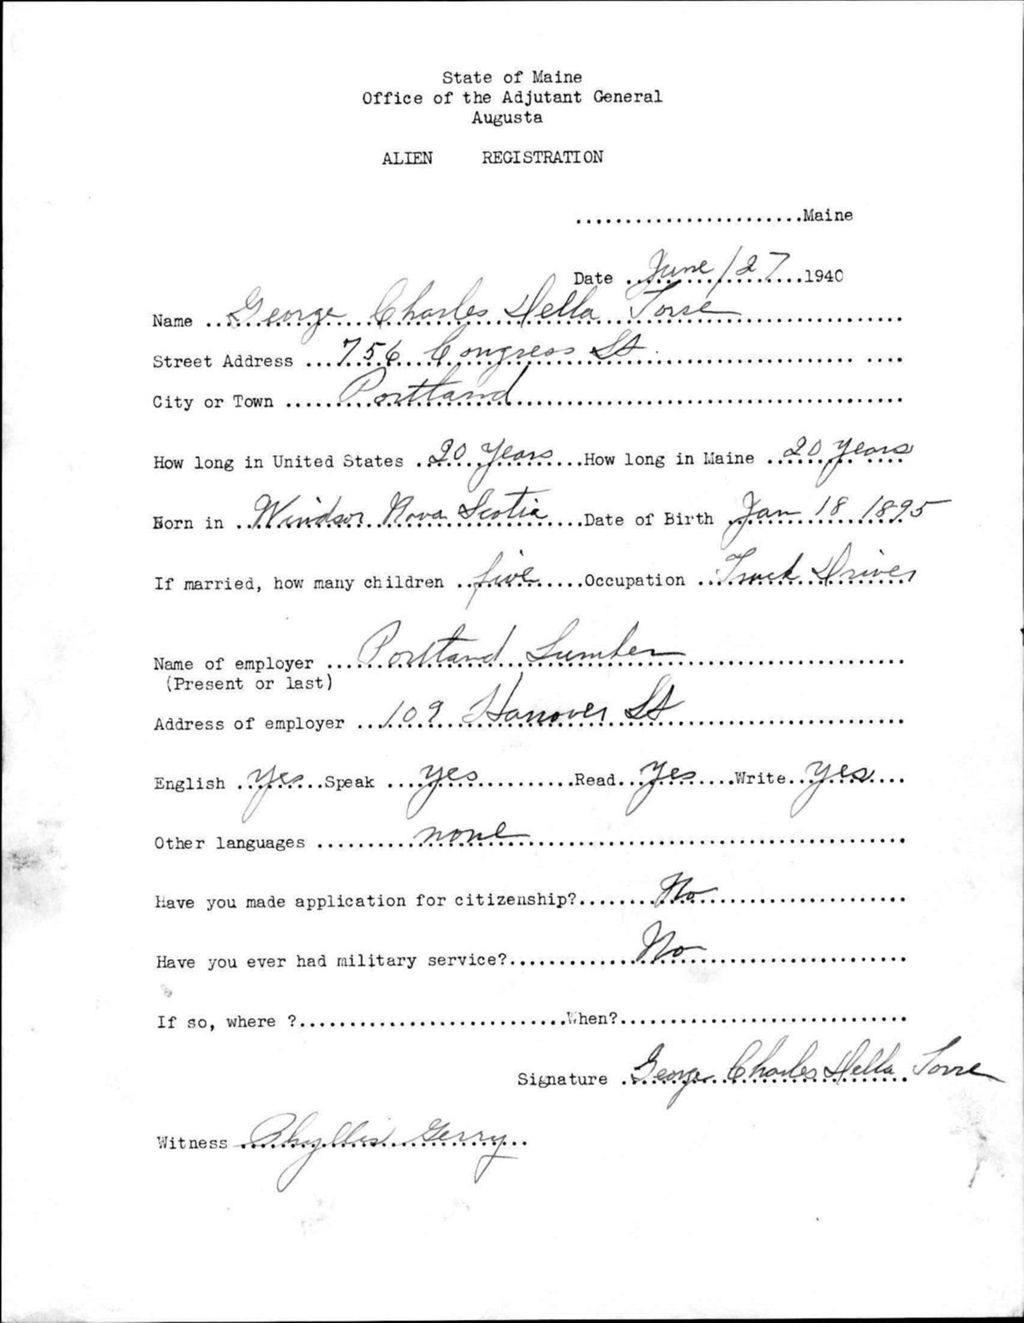 State of Maine
Office of the Adjutant General
Augusta
ALIEN REGISTRATION
.......................Maine
Date June/27 1940
Name George Charles Della Torre
Street Address 756 Congress St.
City or Town Portland
How long in United States 20 Years How long in Maine 20 Years
Born in Windsor Nova Scotia Date of Birth Jan 18 1895
If married, how many children five Occupation Truck Driver
Name of employer Portland Lumber
(Present or last)
Address of employer 109 Hanover St
English Yes Speak yes Read Yes Write yes
Other languages none
Have you made application for citizenship? No
Have you ever had military service? No
If so, where ? When?
Signature George Charles Della Torre
Witness Phyllis Gerry